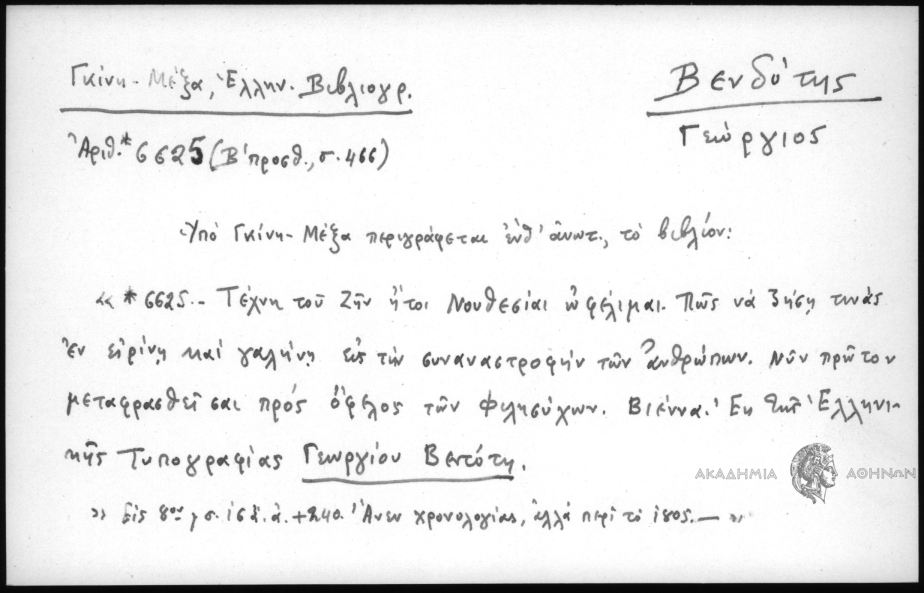 Γκίνη - Μέξα, Ἑλλην. Βιβλιογρ.
Βενδότης
Γεώργιος
Ἀριθ. *6625 (Β' προσθ., σ. 466)
Ὑπό Γκίνη - Μέξα περιγράφεται ἐνθ' ἀνωτ., τό βιβλίον:
« *6625.- Τέχνη τοῦ Ζῆν ἤτοι Νουθεσίαι ὠφέλιμαι. Πῶς νά ζήσῃ τινάς
ἐν εἰρίνῃ καί γαλήνῃ εἰς τήν συναναστροφήν τῶν ἀνθρώπων. Νῦν πρῶτον
μεταφρασθεῖσαι πρός ὄφελος τῶν Φιλησύχων. Βιέννα. Ἐκ τῆς Ἑλληνι-
κῆς Τυπογραφίας Γεωργίου Βεντότη.
» Εἰς 8ον, σ. ἀ. +240. Ἄνευ χρονολογίας, ἀλλά περί τό 1805.— »
ΑΚΑΔΗΜΙΑ ΑΘΗΝΩΝ